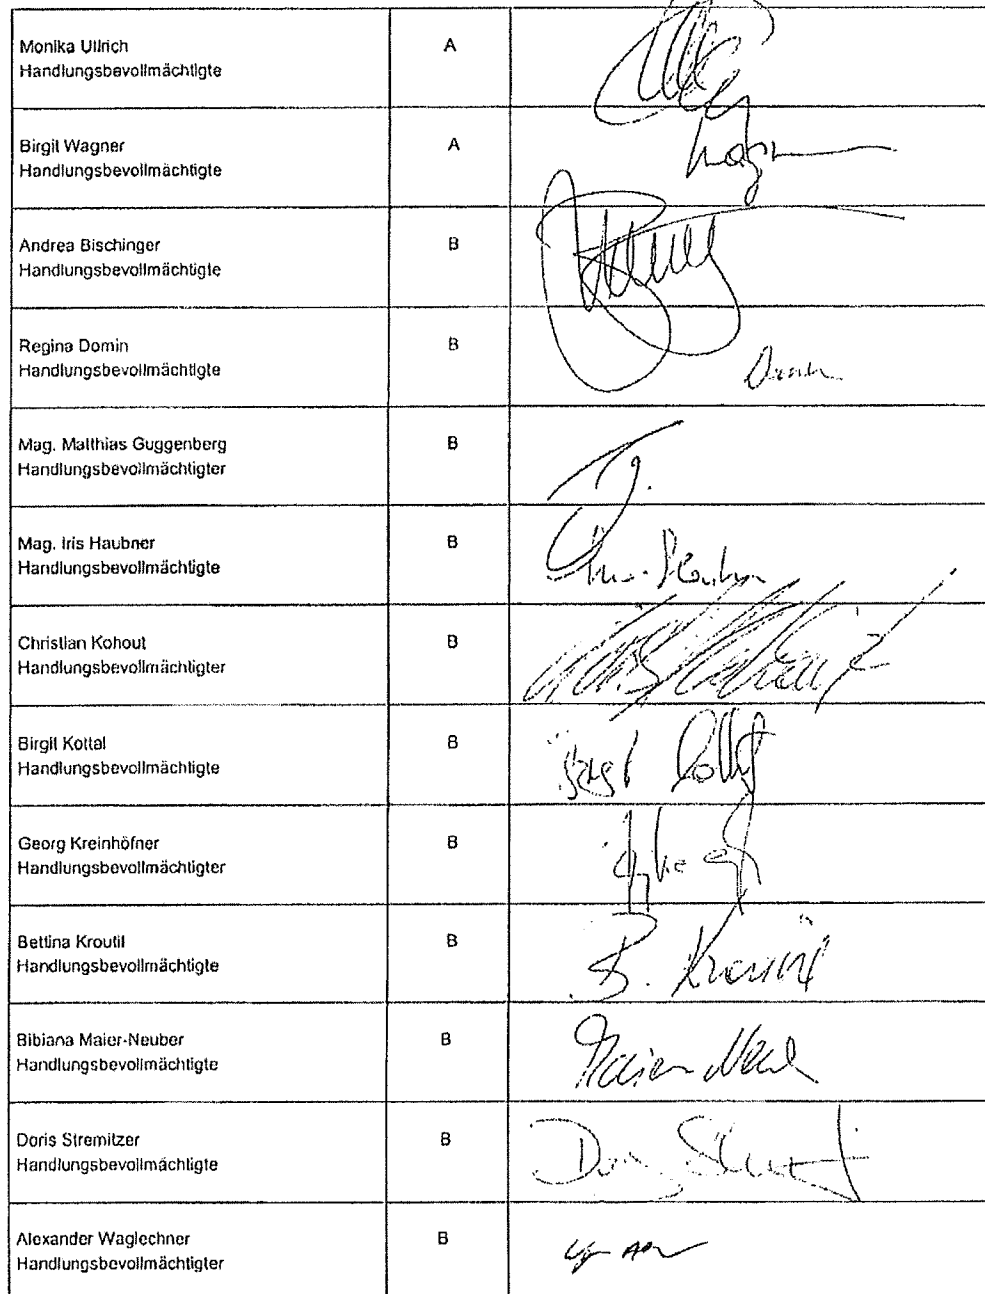 Monika Ullrich
Handlungsbevollmächtigte
A
Birgit Wagner
Handlungsbevollmächtigte
A
Andrea Bischinger
Handlungsbevollmächtigte
B
Regina Domin
Handlungsbevollmächtigte
B
Mag. Matthias Guggenberg
Handlungsbevollmächtigter
B
Mag. Iris Haubner
Handlungsbevollmächtigte
B
Christian Kohout
Handlungsbevollmächtigter
B
Birgit Kottal
Handlungsbevollmächtigte
B
Georg Kreinhöfner
Handlungsbevollmächtigter
B
Bettina Kroutil
Handlungsbevollmächtigte
B
B. Kroutil
Bibiana Maier-Neuber
Handlungsbevollmächtigte
B
Doris Stremitzer
Handlungsbevollmächtigte
B
Alexander Waglechner
Handlungsbevollmächtigter
B